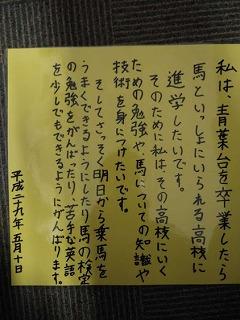 私は、青葉台を卒業したら
馬といっしょにいられる高校に
進学したいです。
そのために私は、その高校にいく
ための勉強や、馬についての知識や
技術を身につけたいです。
そしてさっそく明日から乗馬を
うまくできるようにしたり馬の検定
の勉強をがんばったり、苦手な英語
を少しでもできるようにがんばります。
平成二九年五月十日